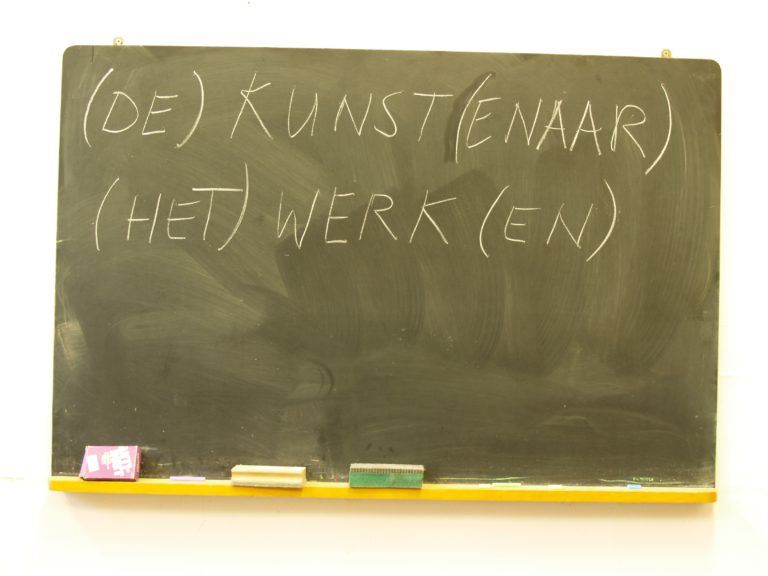 (DE) KUNST(ENAAR)
(HET) WERK(EN)